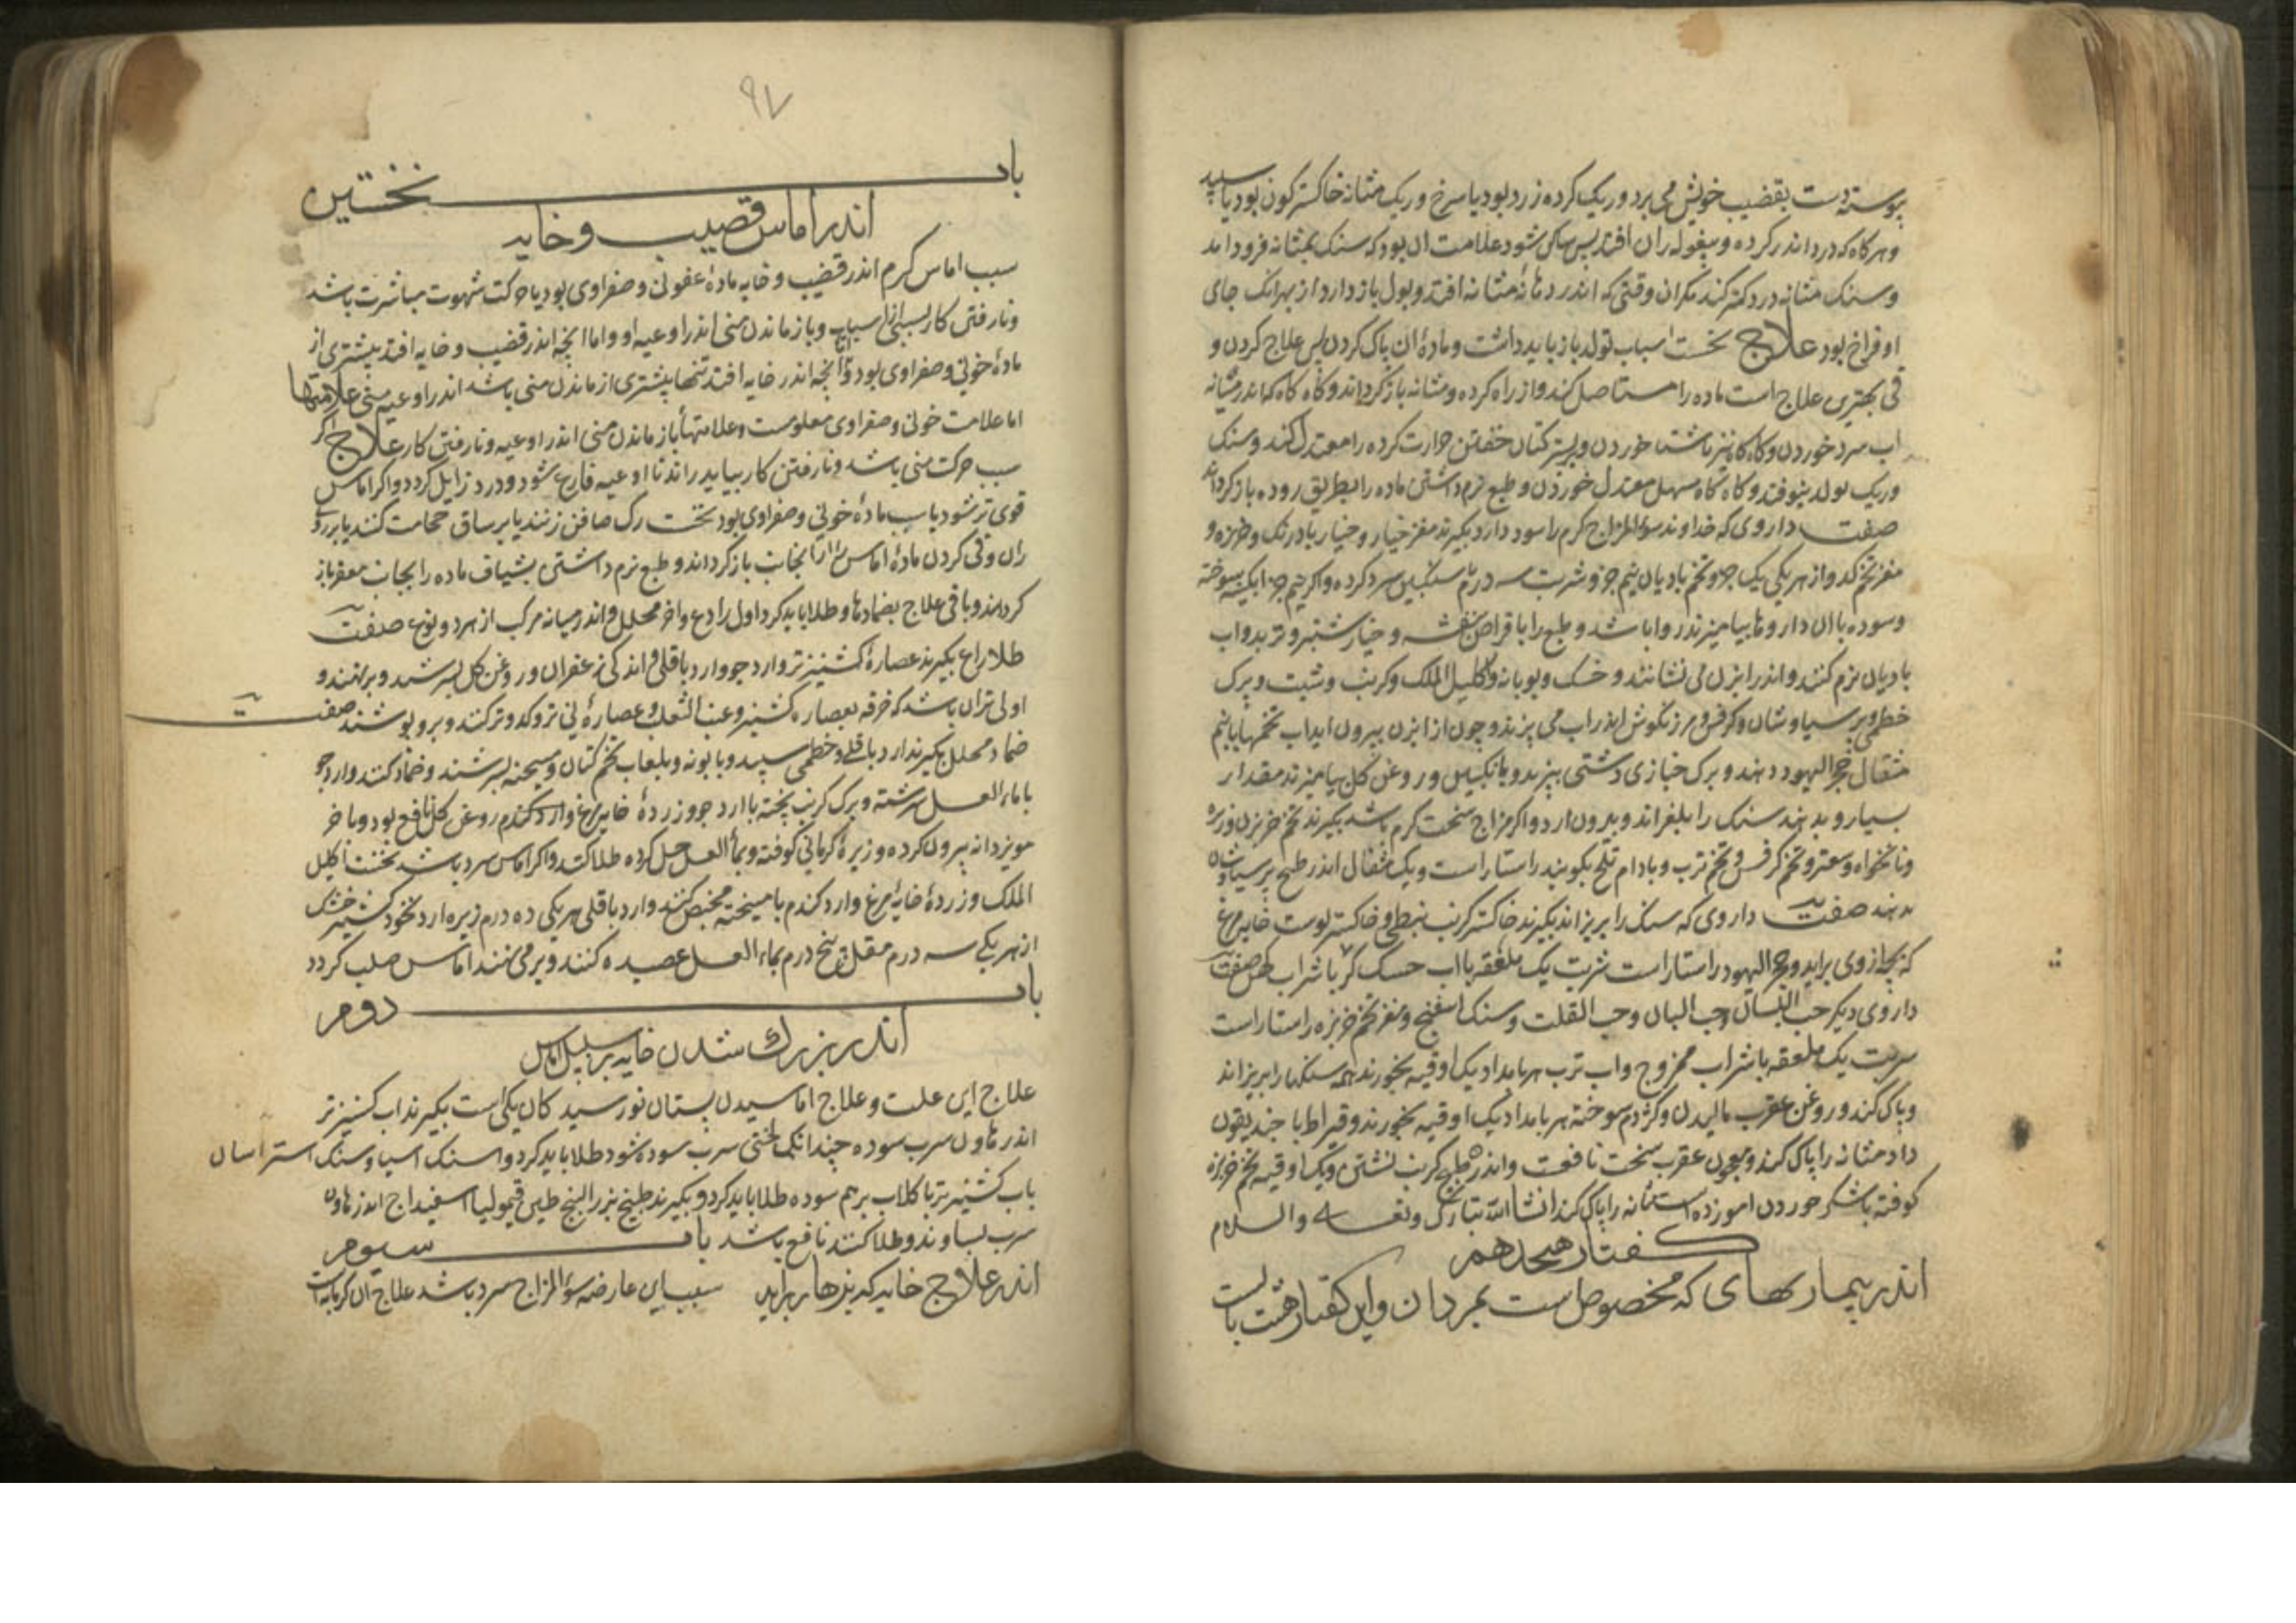 پیوسته دست بقضیب خویش می برد و ریک کرده زرد بود یا سرخ و ریک مثانه خاکستر کون بود یا سپید
و هرکاه که درد اندر کرده و بیغوله ران افتد پس ساکن شود علامت ان بود که سنک بمثانه فرود امد
و سنک مثانه درد کمتر کند مکر ان وقتی که اندر دهانهٔ مثانه افتد و بول باز دارد از بهر انک جای
او فراخ بود علاج نخست اسباب تولد باز باید داشت و مادهٔ ان پاک کردن پس علاج کردن و
قی بهترین علاج است ماده را مستاصل کند و از راه کرده و مثانه باز کرداند و کاه کاه که اندر مثانه
اب سرد خوردن و کاه کاه نیز ناشتا خوردن و بر بستر کتان خفتن حرارت کرده را معتدل کند و سنک
و ریک تولد نیوفتد و کاه کاه سهل معتدل خوردن و طبع نرم داشتن ماده را بطریق روده باز کرداند
صفت داروی که خداوند سوء المزاج کرم را سود دارد بکیرند مغز خیار و خیار بادرنک و خربزه و
مغز تخم کدو از هر یکی یک جزو تخم بادیان نیم جزو شربت سه درم با سکنکبین سرد کرده و اکر نیم جزو ابکینه سوخته
و سوده با ان داروها بیامیزند روا باشد و طبع را با قراص بنفشه و خیار شنبر و تربد و اب
بادیان نرم کنند و اندر ابزن می نشانند و خسک و بوبانه و اکلیل الملک و کرنب و شبت و برک
خطمی و پرسیاوشان و کرفس و مرزنکوش اندر اب می پزند و چون از ابزن بیرون اید اب تخمها با نیم
مثقال حجر الیهود دهند و برک خبازی دشتی بپزند و با انکبین و روغن کل بیامیزند مقدار
بسیار و بدهند سنک را بلغزاند و بیرون ارد و اکر مزاج سخت کرم باشد بکیرند تخم خربزه و زیره
و نانخواه و سعتر و تخم کرفس و تخم ترب و بادام تلخ بکوبند راستا راست و یک مثقال اندر طبیخ پرسیاوشان
بدهند صفت داروی که سنک را بریزاند بکیرند خاکستر کرنب نبطی و خاکستر پوست خایه مرغ
که بچه از وی براید و حجر الیهود راستا راست شربت یک ملعقه با اب خسک کر با شراب کهن صفت
داروی دیکر حب البلسان و حب البان و حب القلت و سنک اسفنج و مغز تخم خربزه راستا راست
شربت یک ملعقه با شراب ممزوج و اب ترب هر بامداد یک اوقیه بخورند همه سنکها را بریزاند
و پاک کند و روغن عقرب مالیدن و کژدم سوخته هر بامداد یک اوقیه بخورند و قیراط با جندیقون
داد مثانه را پاک کند و معجون عقرب سخت نافعست و اندر طبیخ کرنب نشستن و یک اوقیه تخم خربزه
کوفته با شکر خوردن اموزده است مثانه را پاک کند انشا الله تبارک و تعالی والسلام
کفتار هجدهم
اندر بیماریهای که مخصوص است بمردان و این کفتار هشت باب است
۹۷
باب نخستین
اندر اماس قضیب و خایه
سبب اماس کرم اندر قضیب و خایه مادهٔ عفونی و صفراوی بود یا حرکت شهوت مباشرت باشد
و نارفتن کار بسببی از اسباب و باز ماندن منی اندر اوعیه او و اما انچه اندر قضیب و خایه افتد بیشتری از
مادهٔ خونی و صفراوی بود و انچه اندر خایه افتد تنها بیشتری از ماندن منی باشد اندر اوعیه منی علامتها
اما علامت خونی و صفراوی معلومست و علامتهأ باز ماندن منی اندر اوعیه و نارفتن کار علاج اکر
سبب حرکت منی باشد و نارفتن کار بباید راند تا اوعیه فارغ شود و درد زایل کردد و اکر اماس
قوی تر شود یا سبب مادهٔ خونی و صفراوی بود نخست رک صافن زنند یا بر ساق حجامت کنند یا بر روی
ران و قی کردن مادهٔ اماس را از انجانب باز کرداند و طبع نرم داشتن بشیاف ماده را بجانب مقعر باز
کرداند و باقی علاج بضمادها و طلا باید کرد اول رادع و اخر محلل و اندر میانه مرکب از هر دو نوع صفت
طلا رادع بکیرند عصارهٔ کشنیز تر و ارد جو و ارد باقلی و اندکی زعفران و روغن کل بسرشند و برنهند و
اولی تر ان باشد که خرقه بعصاره کشنیز و عنب الثعلب و عصارهٔ نی تر و کدو تر کنند و برو پوشند صفت
ضماد محلل بکیرند ارد باقلی و خطمی سپید و بابونه و بلعاب تخم کتان و میبخته بسرشند و ضماد کنند و ارد جو
با ماء العسل سرشته و برک کرنب پخته با ارد جو و زردهٔ خایه مرغ و ارد کندم روغن کل نافع بود و باخر
مویز دانه بیرون کرده و زیرهٔ کرمانی کوفته و بماء العسل حل کرده طلا کنند و اکر اماس سرد باشد نخست اکلیل
الملک و زردهٔ خایهٔ مرغ و ارد کندم با میبخته مخبص کنند و ارد باقلی هر یکی ده درم زیره ارد نخود کشنیز خشک
از هر یکی سه درم مقل پنج درم بماء العسل عصیده کنند و بر می نهند اماس صلب کردد
باب دوم
اندر بزرک شدن خایه بر سبیل اماس
علاج این علت و علاج اماسیدن پستان نورسیدکان یکی است بکیرند اب کشنیز تر
اندر هاون سرب سوده چندانکه لختی سرب سوده شود طلا باید کرد و اسنک اسیا و سنک استر اسان
باب کشنیز تر با کلاب برهم سوده طلا باید کرد و بکیرند طبیخ بزر البنج طین قیمولیا اسفیداج اندر هاون
سرب بساوند و طلا کنند نافع باشد باب سیوم
اندر علاج خایه که بزهار براید سبب این عارضه سوء المزاج سرد باشد علاج ان کرمابه است